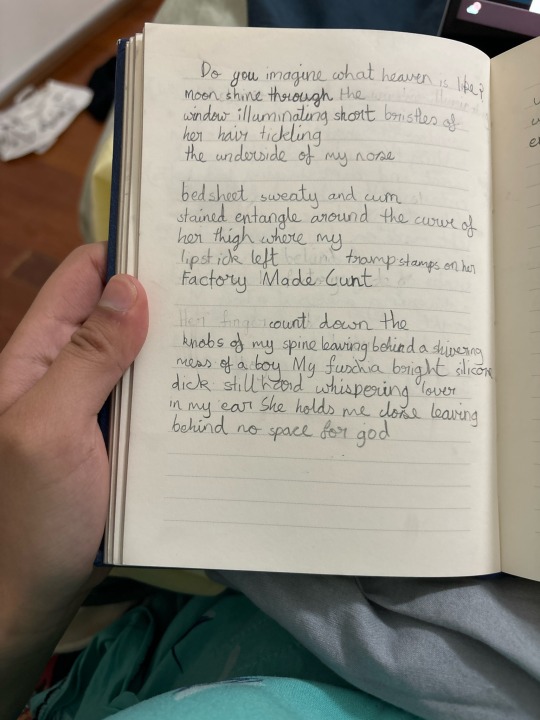 Do you imagine what heaven is like?
moon shine through the
window illuminating short bristles of
her hair tickling
the underside of my nose
bedsheet, sweaty and cum
stained entangle around the curve of
her thigh where my
lipstick left tramp stamps on her
Factory Made Cunt
Her finger count down the
knobs of my spine leaving behind a shivering
mess of a boy My fuschia bright silicone
dick still hard whispering lover
in my ear She holds me close leaving
behind no space for god